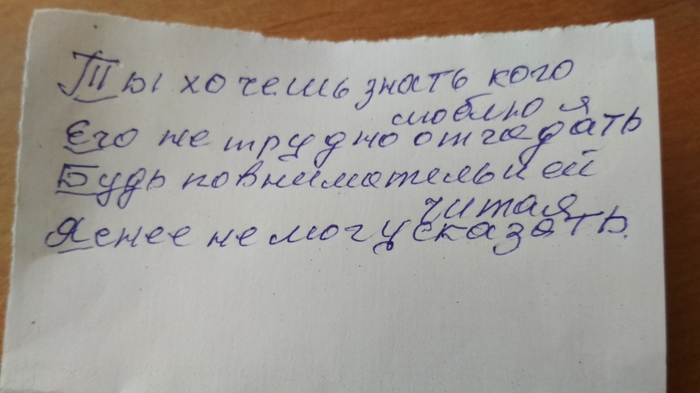 Ты хочешь знать кого
люблю я
Его не трудно отгадать
Будь повнимательней
читая
Яснее не могу сказать.